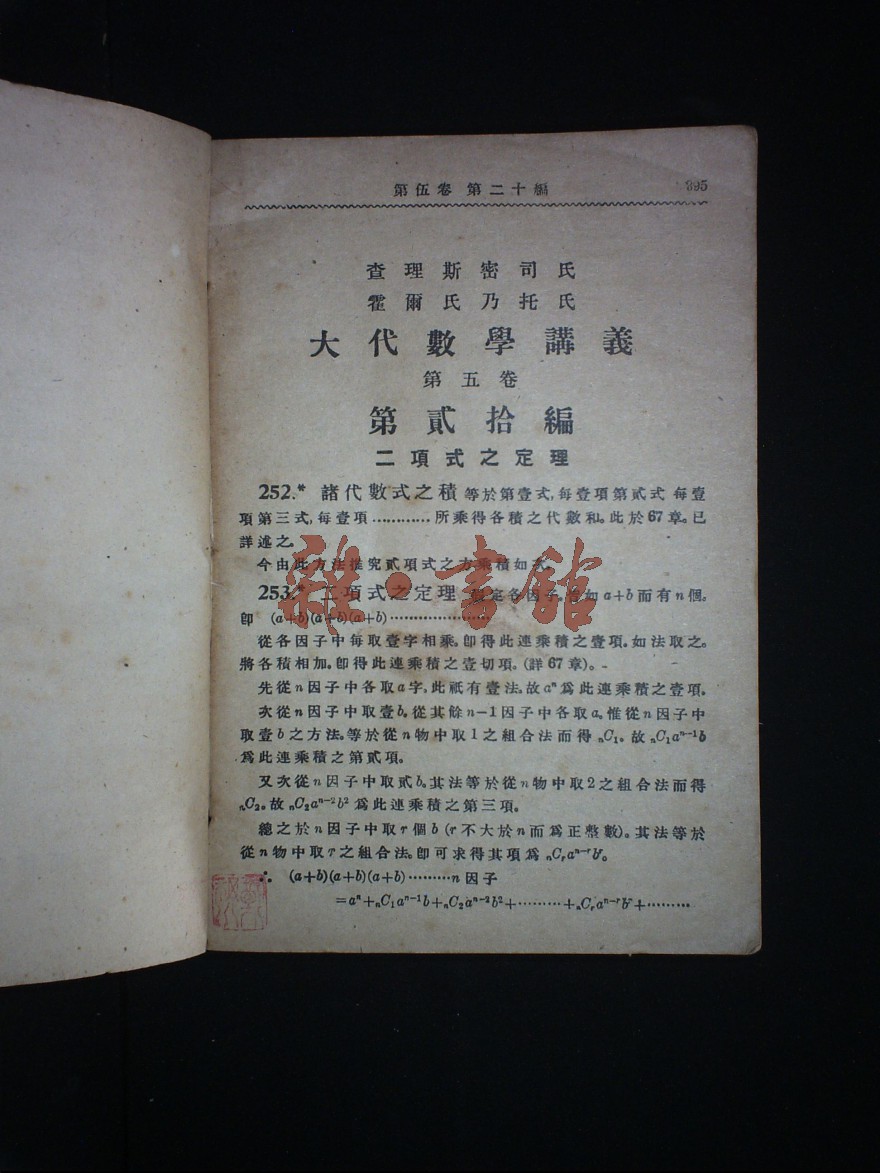 第伍卷 第二十編 395
查理斯密司氏
霍爾氏乃托氏
大代數學講義
第五卷
第貳拾編
二項式之定理
252.* 諸代數式之積 等於第壹式,每壹項第貳式 每壹
項第三式,每壹項…………所乘得各積之代數和。此於67章。已
詳述之。
今由此方法推究貳項式之方乘積如次。
253.* 二項式之定理 設定各因子。皆如a+b而有n個。
卽 (a+b)(a+b)(a+b)……………………
從各因子中每取壹字相乘。卽得此連乘積之壹項。如法取之。
將各積相加。卽得此連乘積之壹切項。(詳67章)。
先從n因子中各取a字,此祇有壹法。故aⁿ爲此連乘積之壹項。
次從n因子中取壹b。從其餘n−1因子中各取a。惟從n因子中
取壹b之方法。等於從n物中取1之組合法而得 ₙC₁。故 ₙC₁aⁿ⁻¹b
爲此連乘積之第貳項。
又次從n因子中取貳b。其法等於從n物中取2之組合法而得
ₙC₂。故 ₙC₂aⁿ⁻²b² 爲此連乘積之第三項。
總之於n因子中取r個b(r不大於n而爲正整數)。其法等於
從n物中取r之組合法。卽可求得其項爲 ₙCᵣaⁿ⁻ʳbʳ。
∴ (a+b)(a+b)(a+b)………n因子
=aⁿ+ₙC₁aⁿ⁻¹b+ₙC₂aⁿ⁻²b²+………+ₙCᵣaⁿ⁻ʳbʳ+………
雜·書館